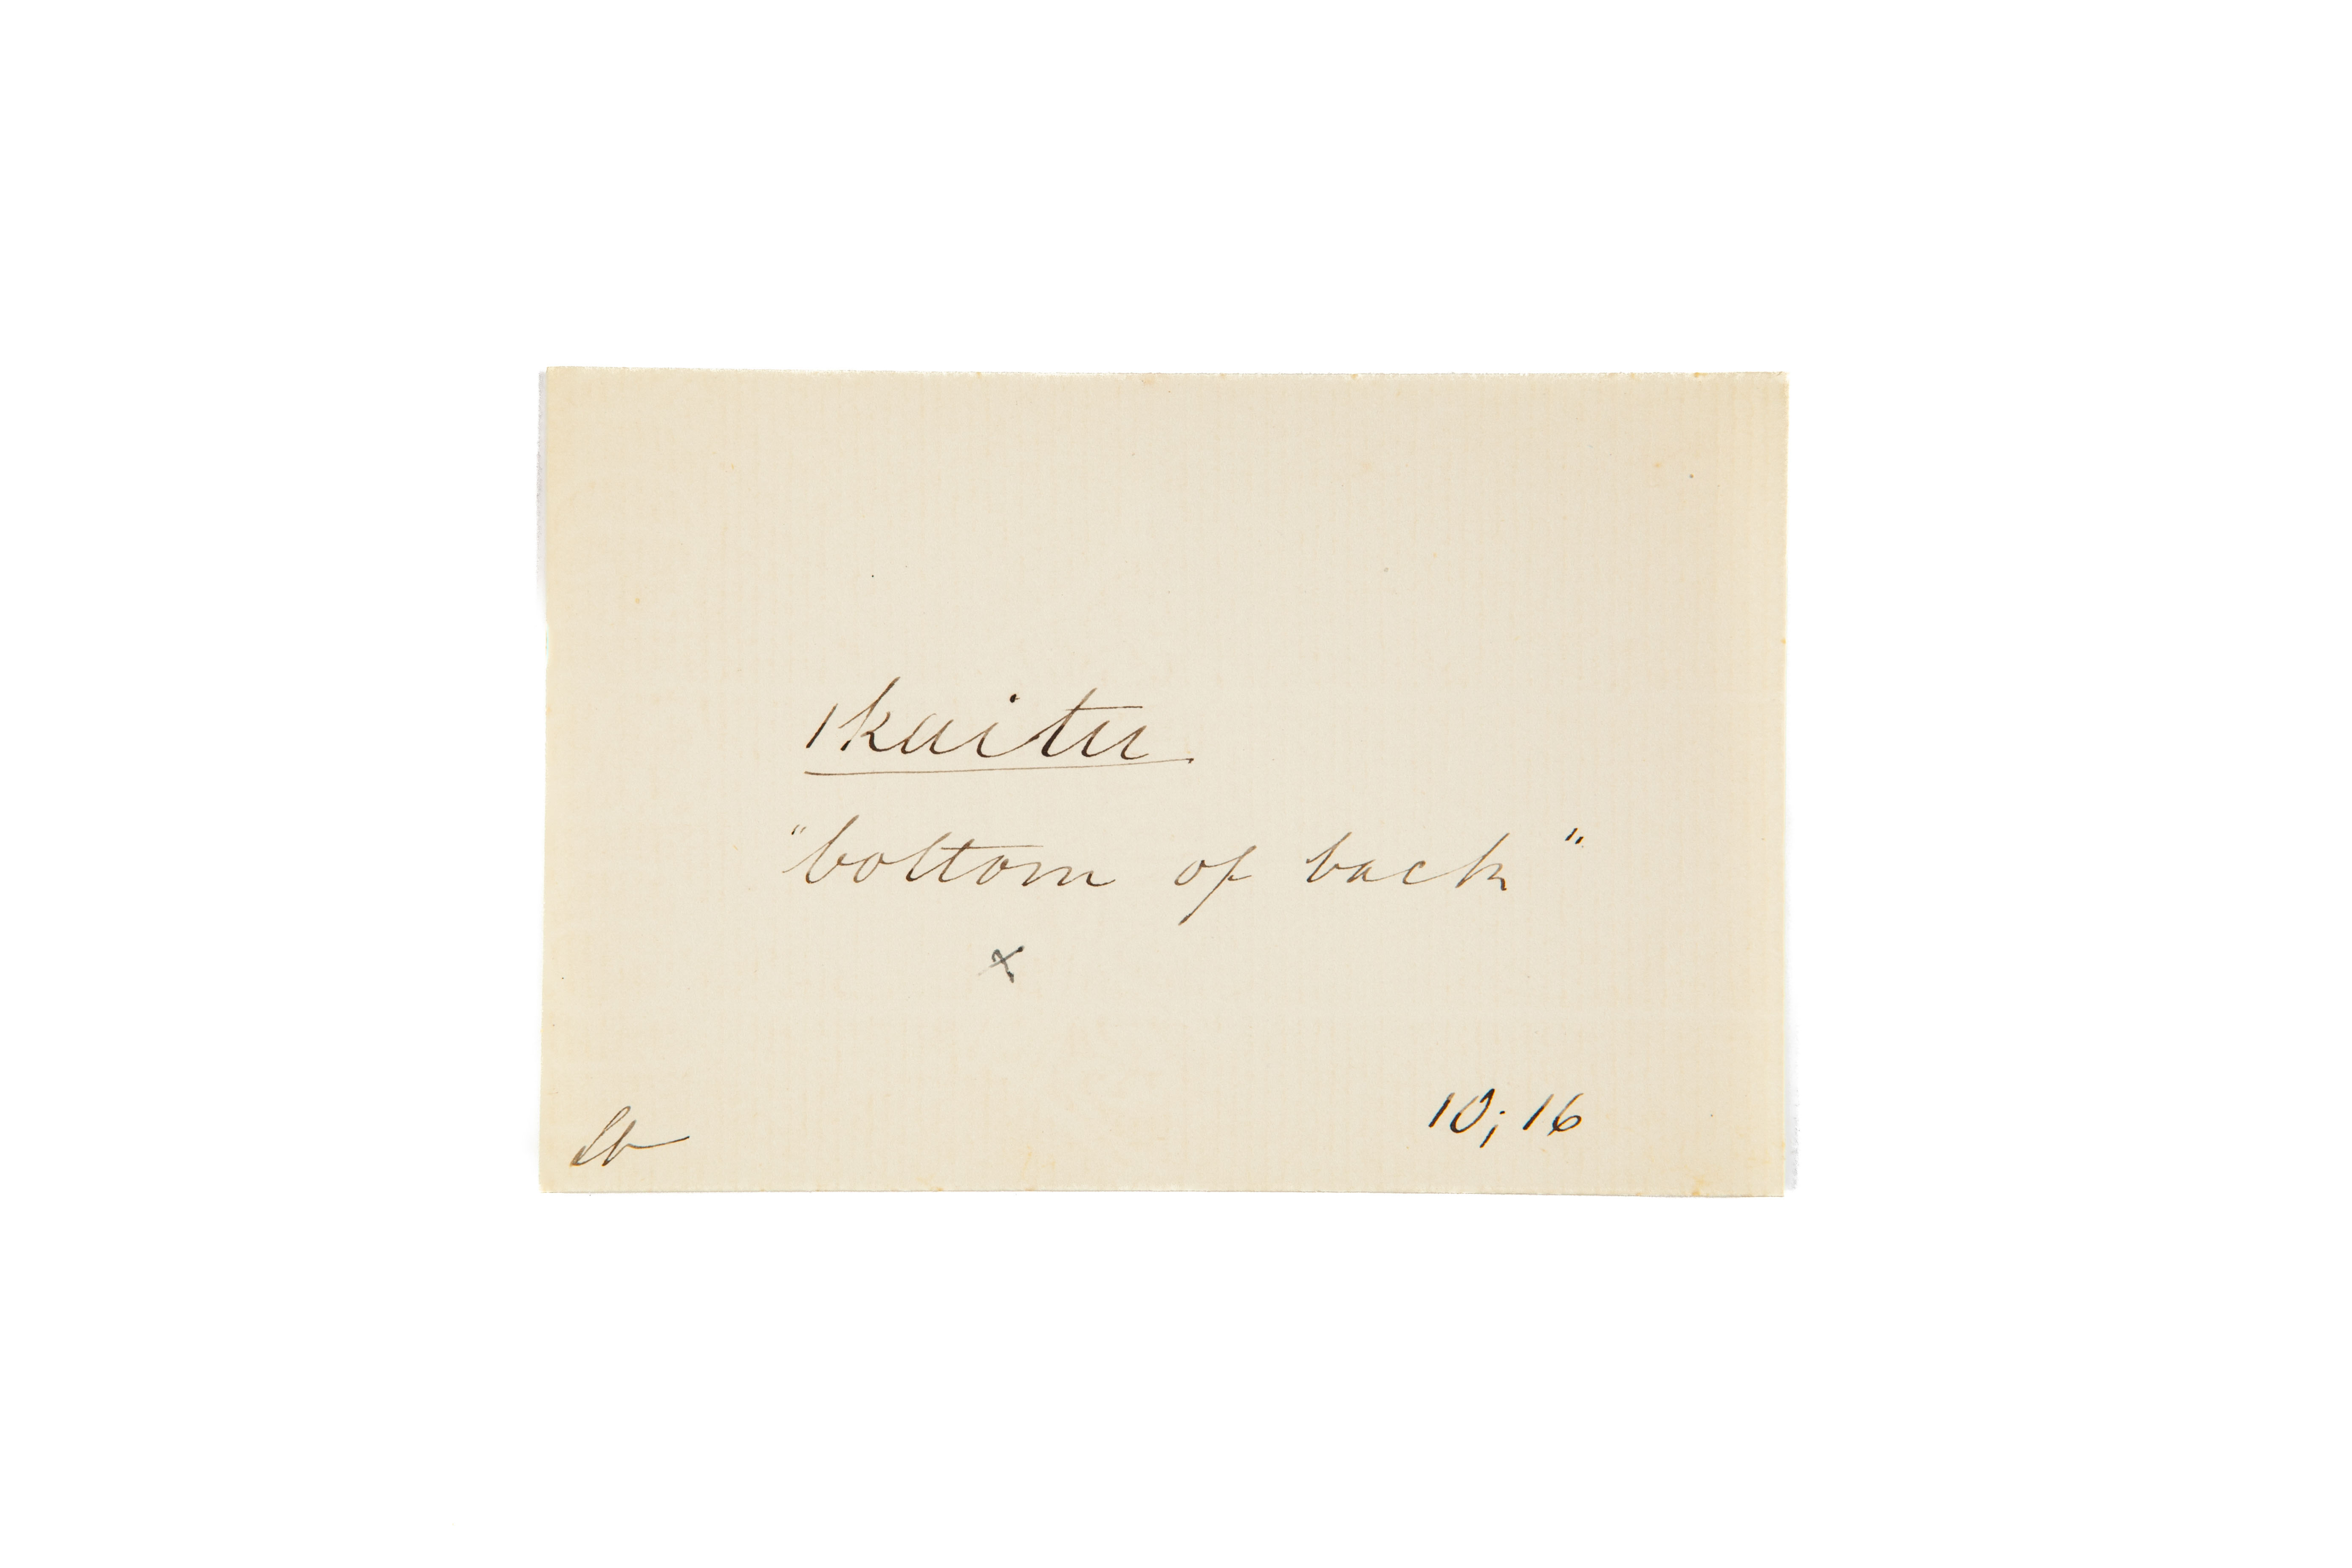 ikaitu
"bottom of back"
x
10; 16